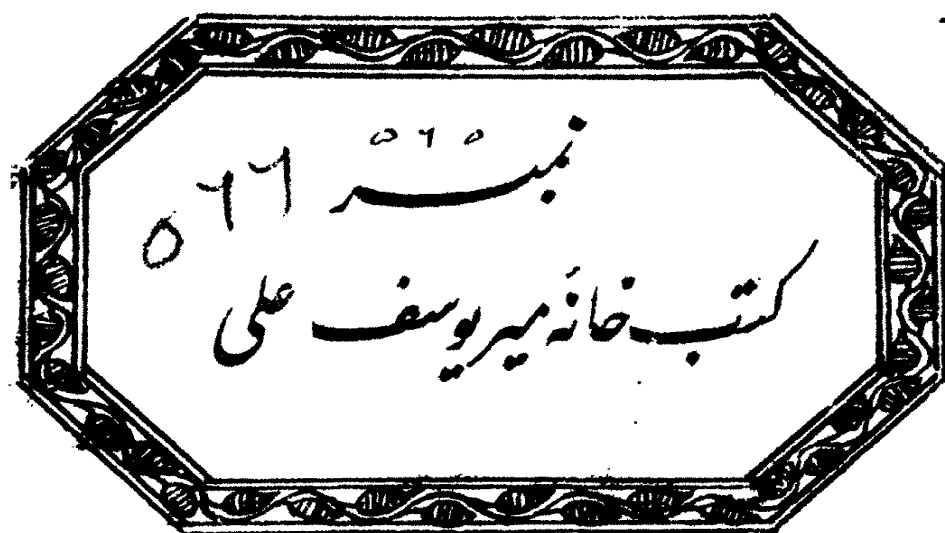 نمبر ٥٦٥
٥٦٦
کتب خانۂ میر یوسف علی